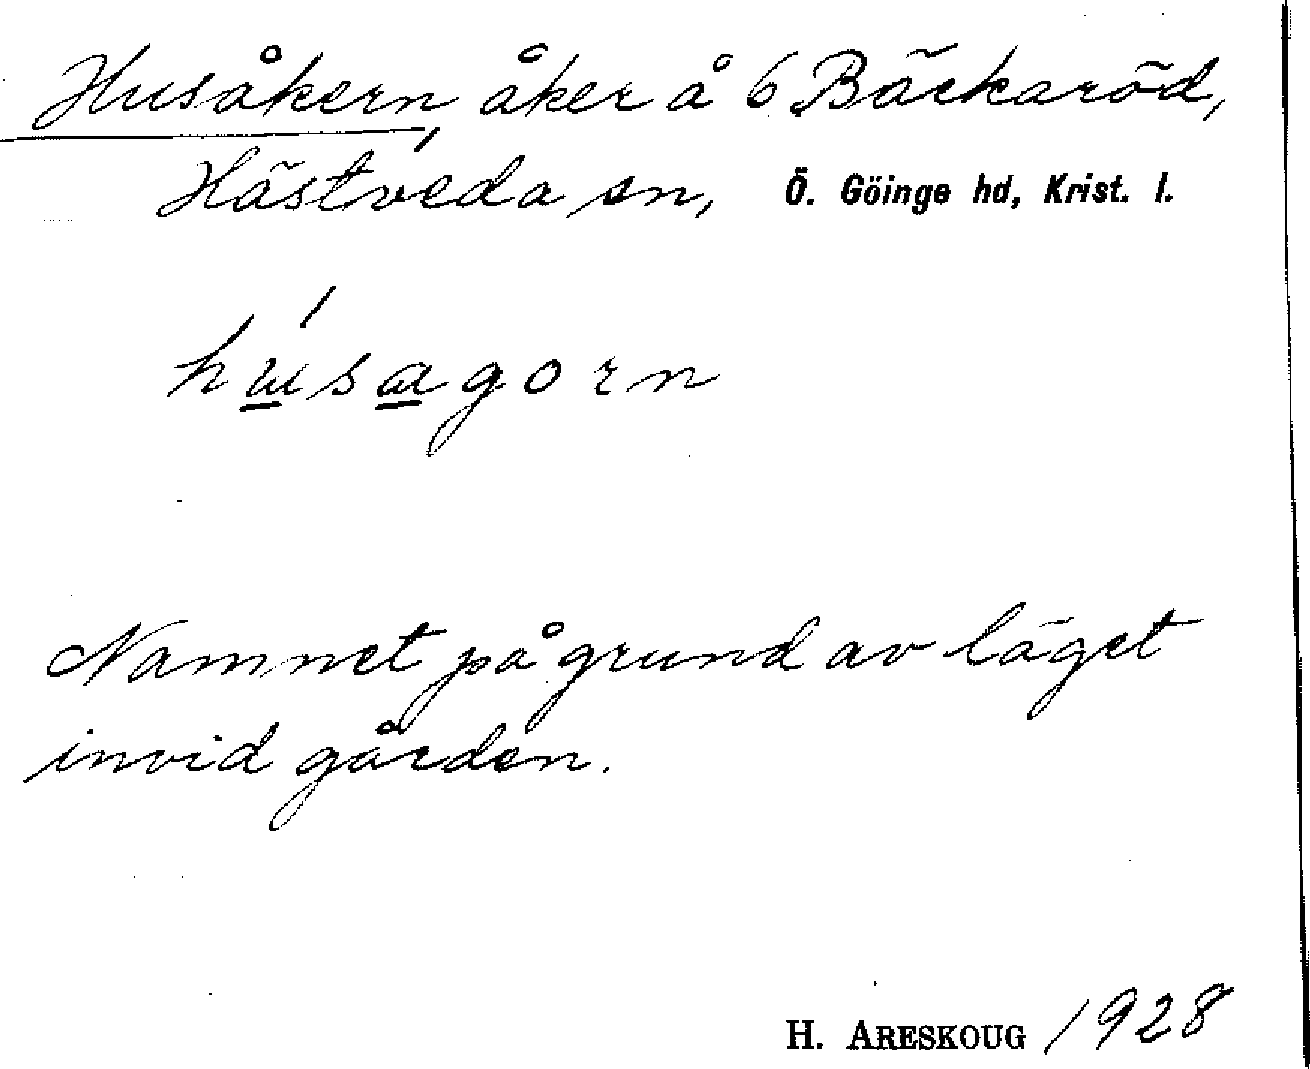 Husåkern, åker å 6 Bäckaröd,
Hästveda sn, Ö. Göinge hd, Krist. l.
húsagorn
Namnet på grund av läget
invid gården.
H. ARESKOUG 1928